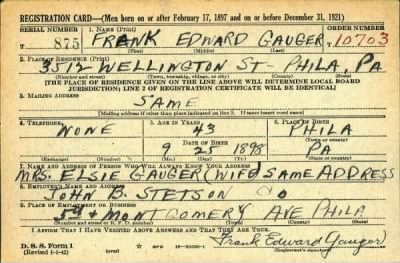 REGISTRATION CARD—(Men born on or after February 17, 1897 and on or before December 31, 1921)
SERIAL NUMBER 1. NAME (Print) ORDER NUMBER
875 FRANK EDWARD GAUGER 10703
(First) (Middle) (Last)
2. PLACE OF RESIDENCE (Print)
3512 WELLINGTON ST- PHILA, PA
(Number and street) (Town, township, village, or city) (County) (State)
[THE PLACE OF RESIDENCE GIVEN ON THE LINE ABOVE WILL DETERMINE LOCAL BOARD
JURISDICTION; LINE 2 OF REGISTRATION CERTIFICATE WILL BE IDENTICAL]
3. MAILING ADDRESS
SAME
[Mailing address if other than place indicated on line 2. If same insert word same]
4. TELEPHONE 5. AGE IN YEARS 6. PLACE OF BIRTH
NONE 43 PHILA
DATE OF BIRTH
9 25 1898 PA
(Exchange) (Number) (Mo.) (Day) (Yr.) (State or country)
7. NAME AND ADDRESS OF PERSON WHO WILL ALWAYS KNOW YOUR ADDRESS
MRS. ELSIE GAUGER (WIFE) SAME ADDRESS
8. EMPLOYER'S NAME AND ADDRESS
JOHN B. STETSON CO
9. PLACE OF EMPLOYMENT OR BUSINESS
5th + MONTGOMERY AVE PHILA
(Number and street or R. F. D. number) (Town) (County) (State)
I AFFIRM THAT I HAVE VERIFIED ABOVE ANSWERS AND THAT THEY ARE TRUE.
D. S. S. Form 1
(Revised 1-1-42) Frank Edward Gauger